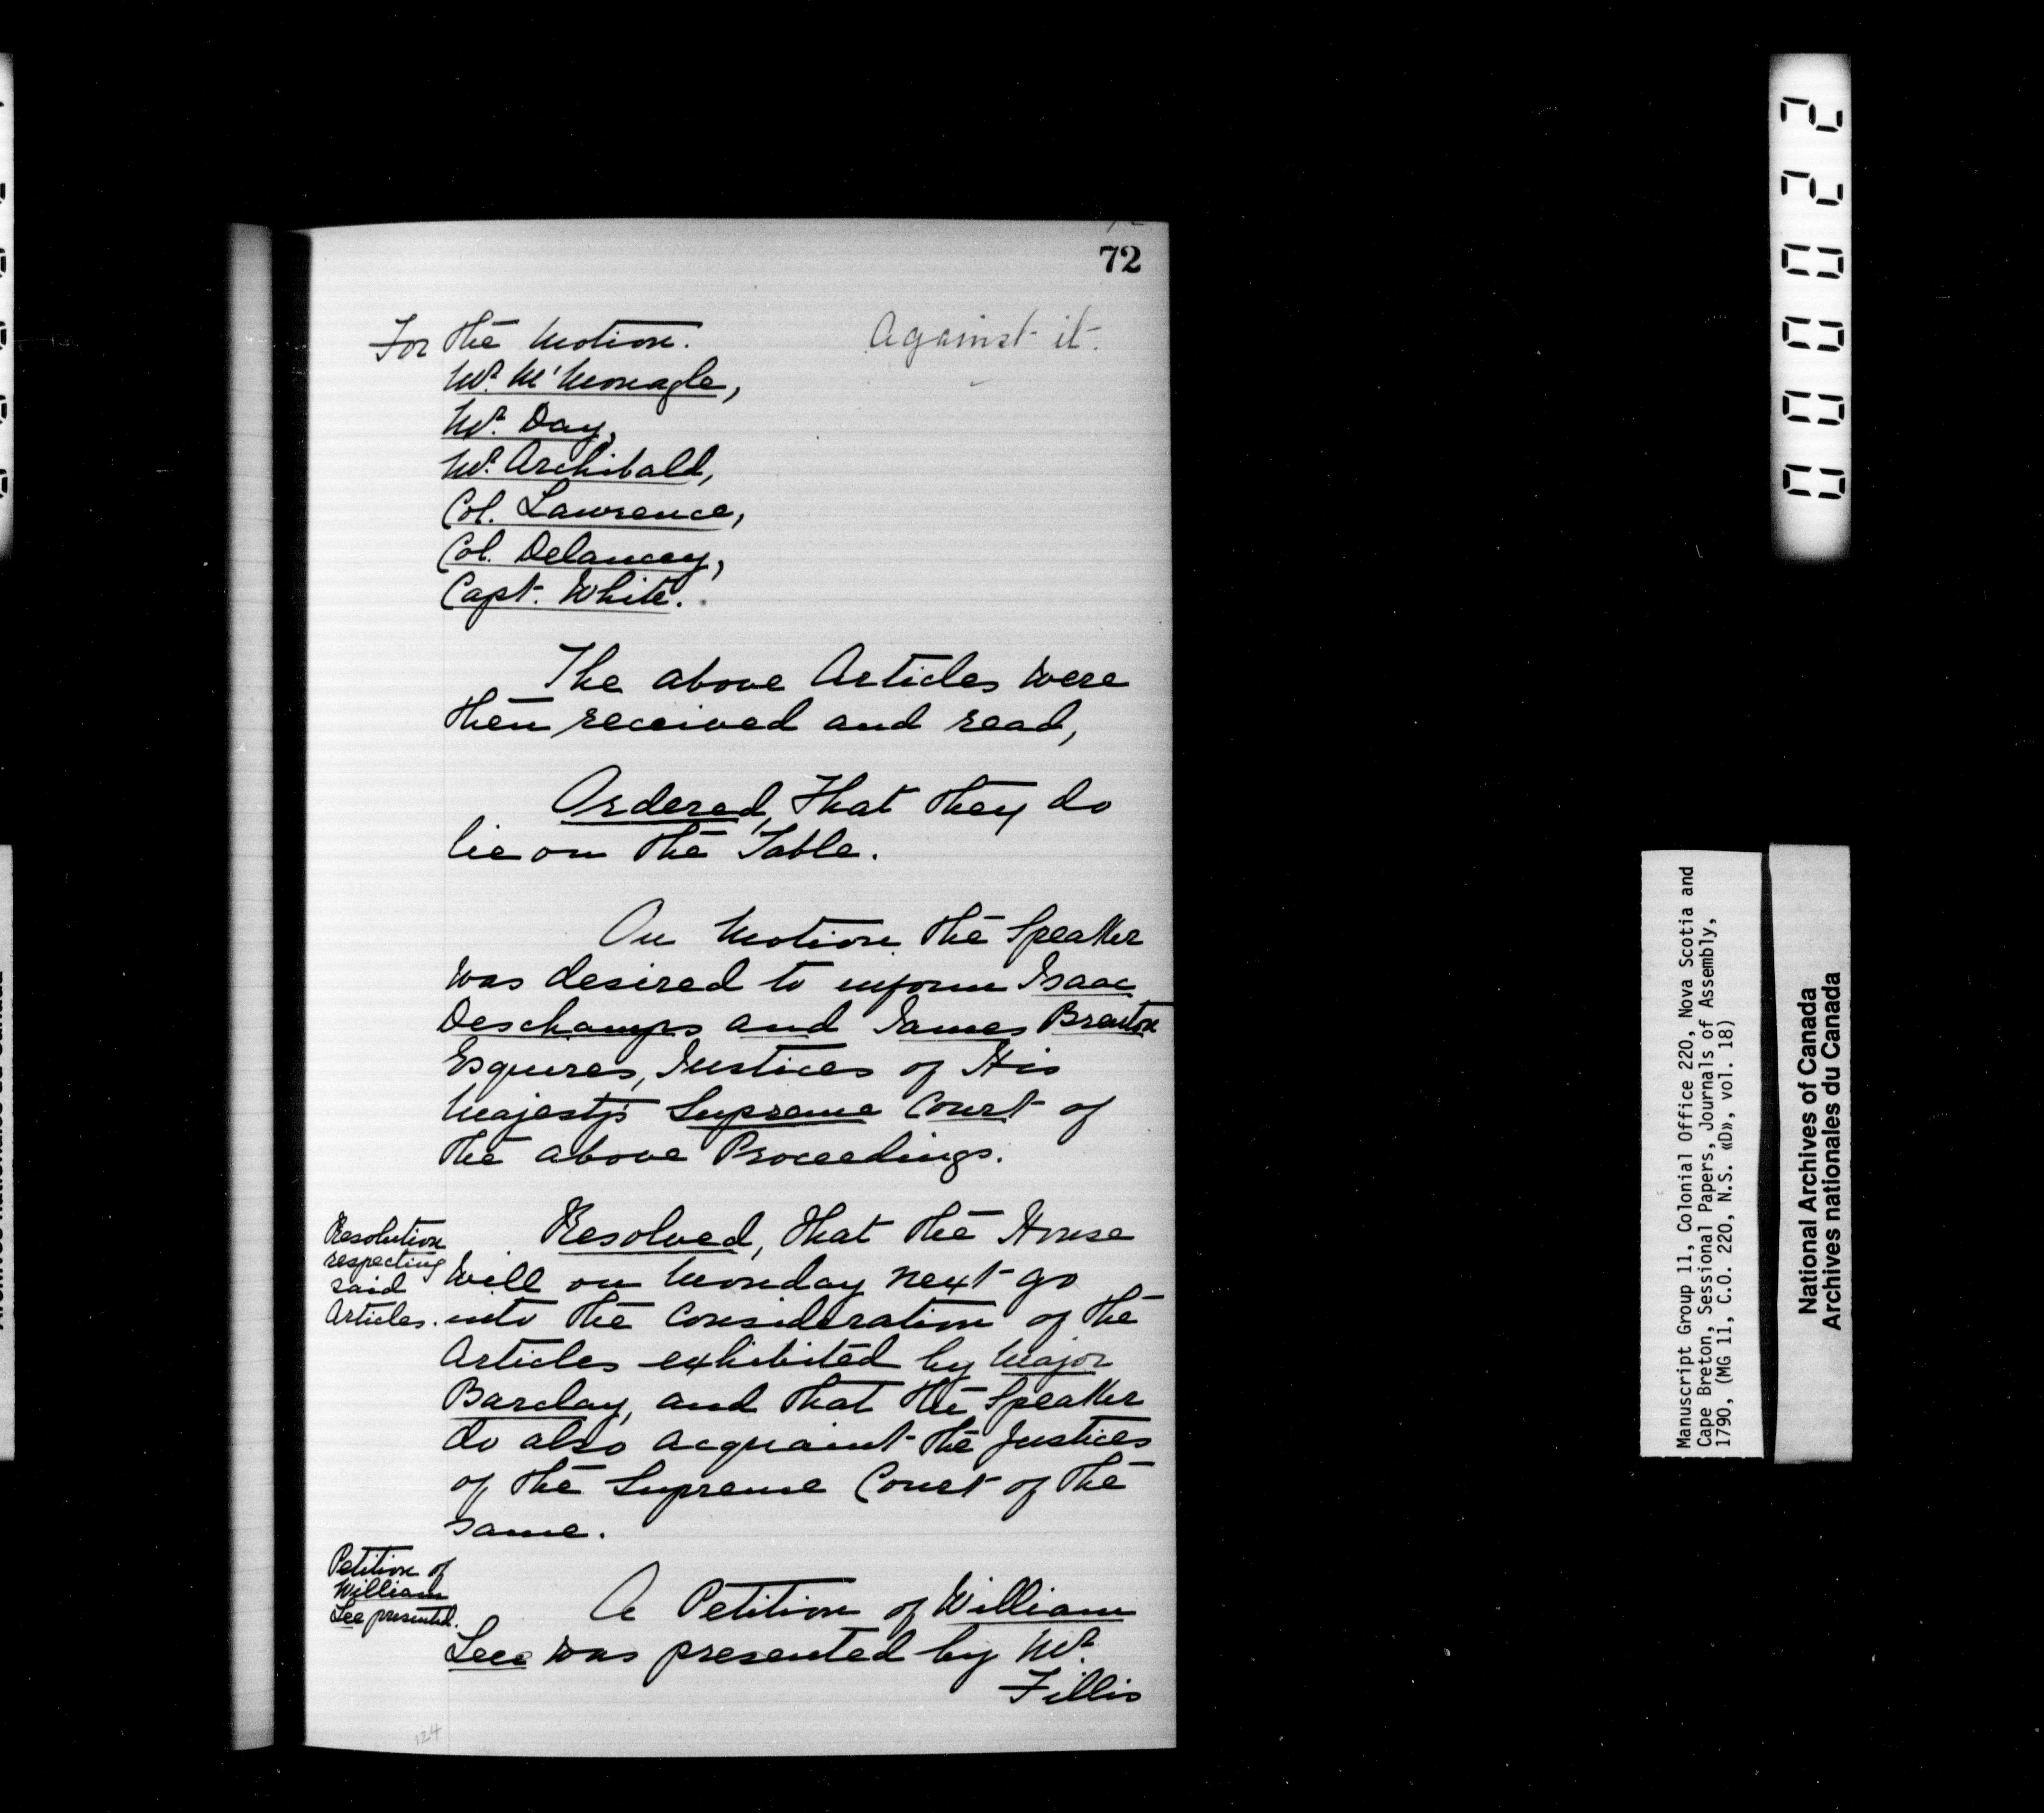 72
For the Motion. Against it.
Mr. M'Monagle,
Mr. Day,
Mr. Archibald,
Col. Lawrence,
Col. Delancey,
Capt. White.
The above Articles were
then received and read,
Ordered, That they do
lie on the Table.
On Motion the Speaker
was desired to inform Isaac
Deschamps and James Brenton
Esquires, Justices of His
Majesty's Supreme Court of
the above Proceedings.
Resolution
respecting
said
Articles.
Resolved, that the House
will on Monday next go
into the Consideration of the
Articles exhibited by Major
Barclay, and that the Speaker
do also acquaint the Justices
of the Supreme Court of the
same.
Petition of
William
Lee presented.
A Petition of William
Lee was presented by Mr.
Fillis
124
000022
Manuscript Group 11, Colonial Office 220, Nova Scotia and
Cape Breton, Sessional Papers, Journals of Assembly,
1790, (MG 11, C.O. 220, N.S. «D», vol. 18)
National Archives of Canada
Archives nationales du Canada